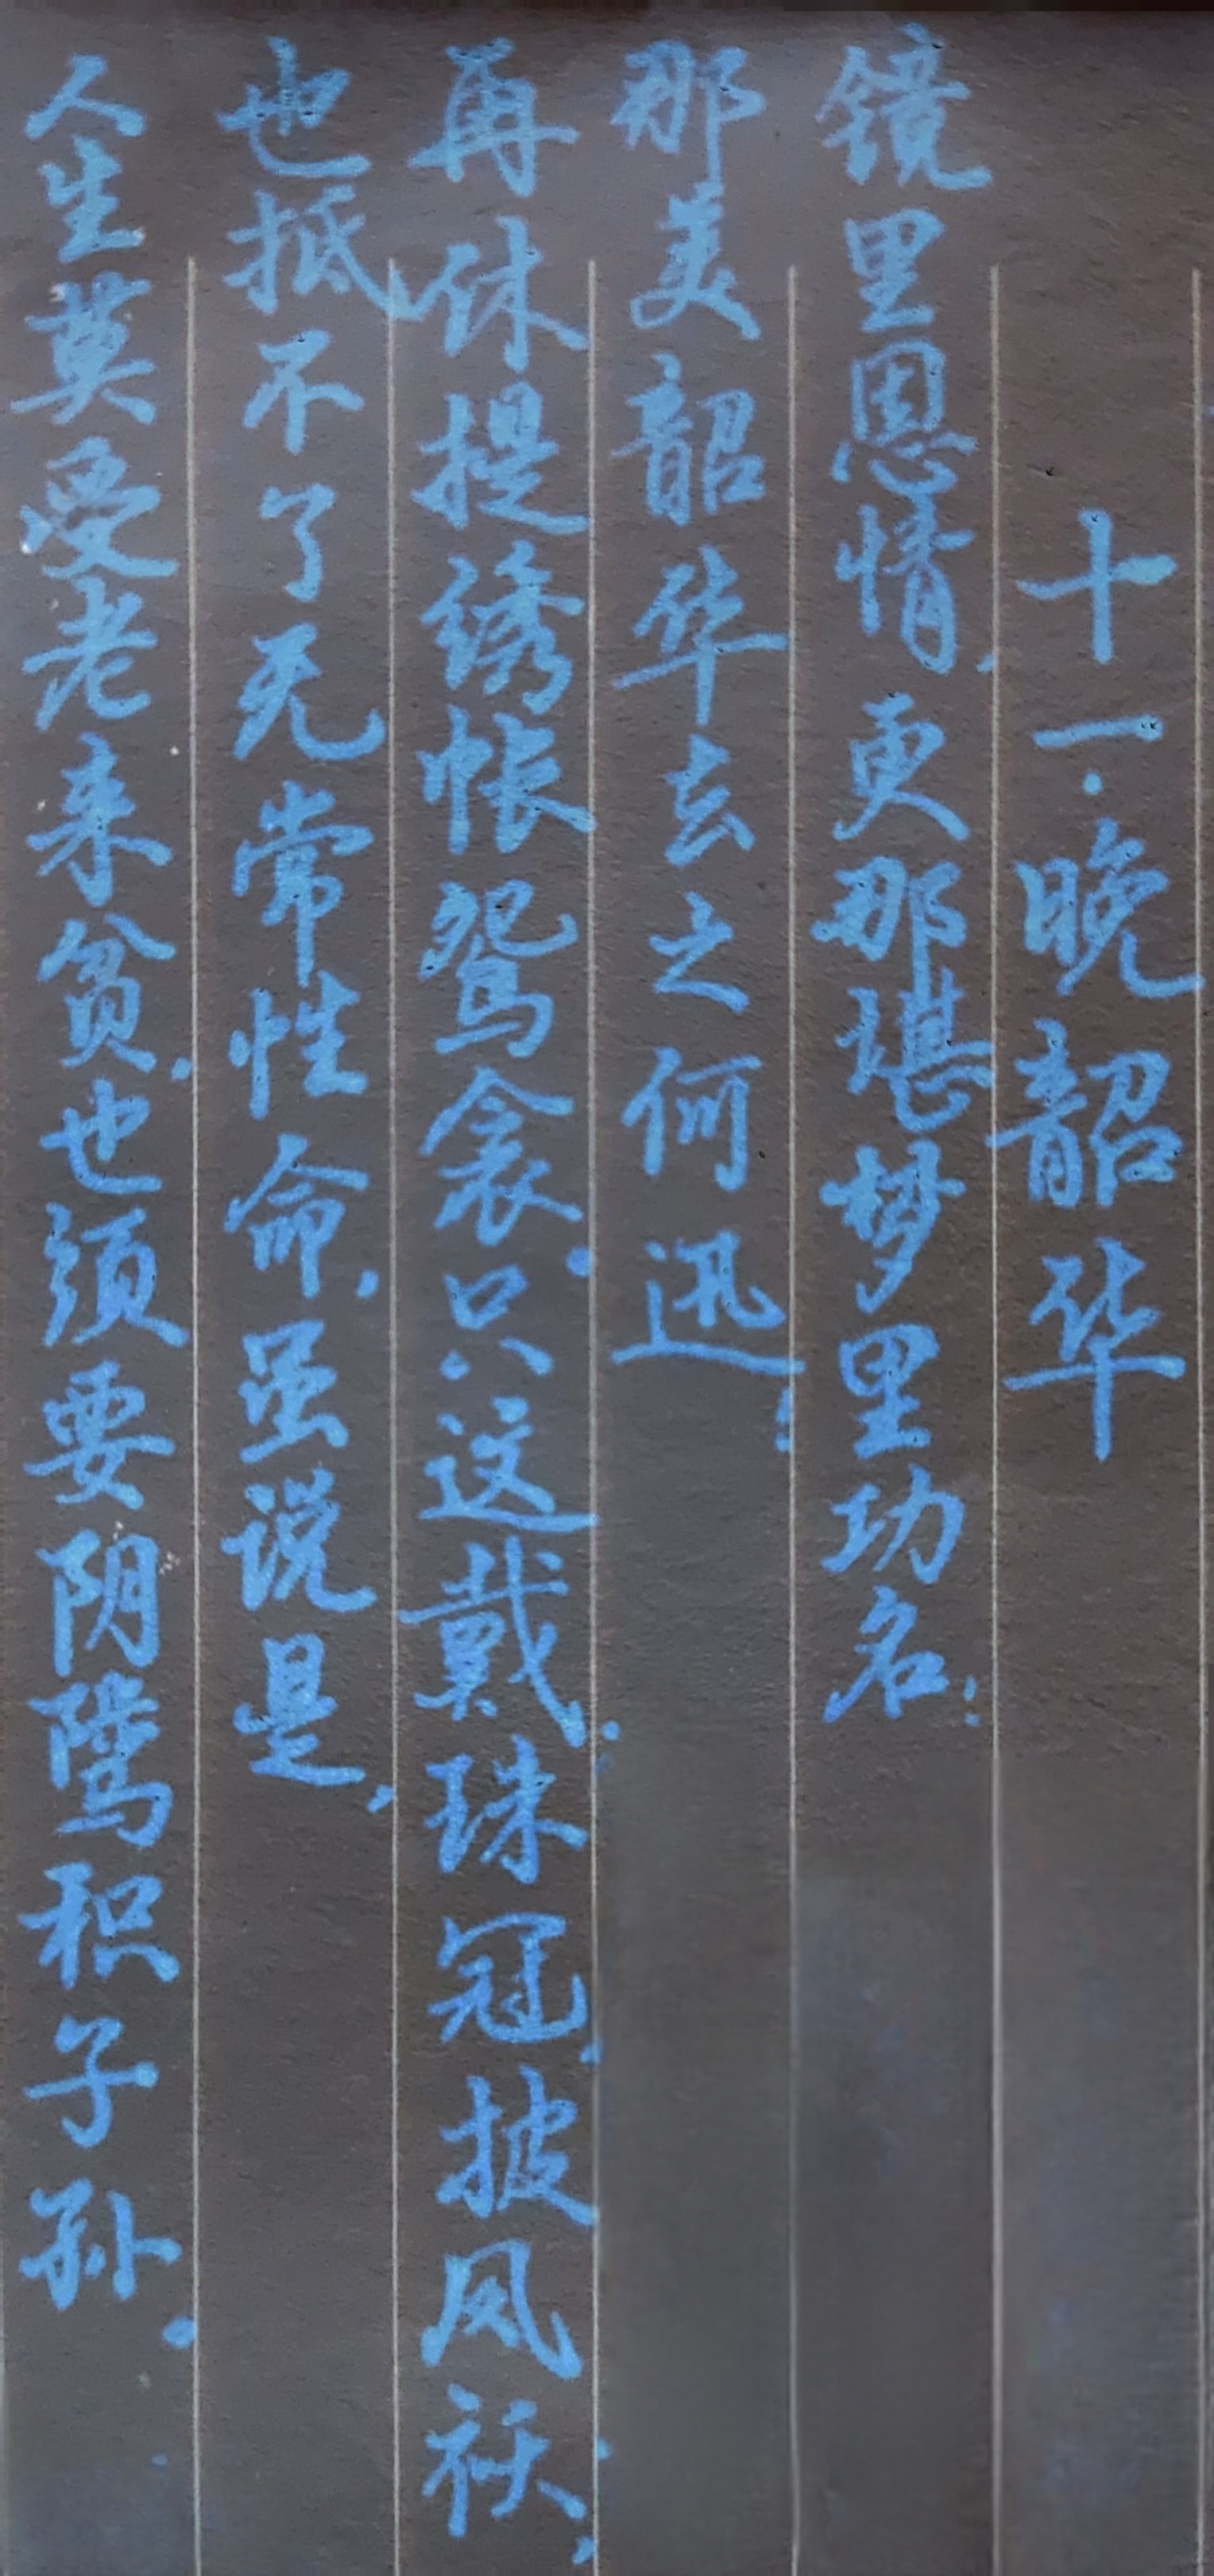 十一·晚韶华
镜里恩情,更那堪梦里功名!
那美韶华去之何迅!
再休提绣帐鸳衾。只这戴珠冠,披凤袄;
也抵不了无常性命,虽说是,
人生莫受老来贫,也须要阴骘积子孙。